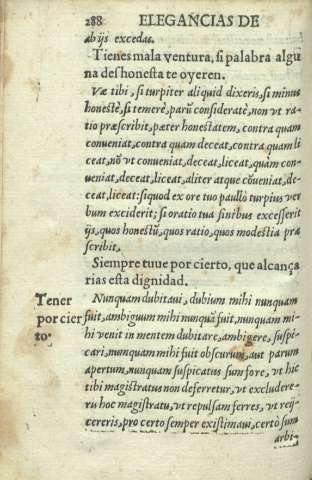 288 ELEGANCIAS DE
ab ijs excedas.
Tienes mala ventura, si palabra algu
na deshonesta te oyeren.
Væ tibi, si turpiter aliquid dixeris, si minus
honestè, si temerè, parũ consideratè, non vt ra-
tio præscribit, pæter honestatem, contra quam
conueniat, contra quam deceat, contra quam li
ceat, nõ vt conueniat, deceat, liceat, quàm con-
ueniat, deceat, liceat, aliter atque cõueniat, de-
ceat, liceat: si quod ex ore tuo paullò turpius ver
bum exciderit; si oratio tua finibus excesserit
ijs, quos honestũ, quos ratio, quos modestia præ
scribit.
Siempre tuue por cierto, que alcança
rias esta dignidad.
Tener por cierto.
Nunquam dubitaui, dubium mihi nunquam
fuit, ambiguum mihi nunquã fuit, nunquam mi-
hi venit in mentem dubitare, ambigere, suspi-
cari, nunquam mihi fuit obscurum, aut parum
apertum, nunquam suspicatus sum fore, vt hic
tibi magistratus non deferretur, vt excludere-
ru hoc magistratu, vt repulsam ferres, vt reij-
cereris, pro certo semper existimaui, certò sum
arbi-